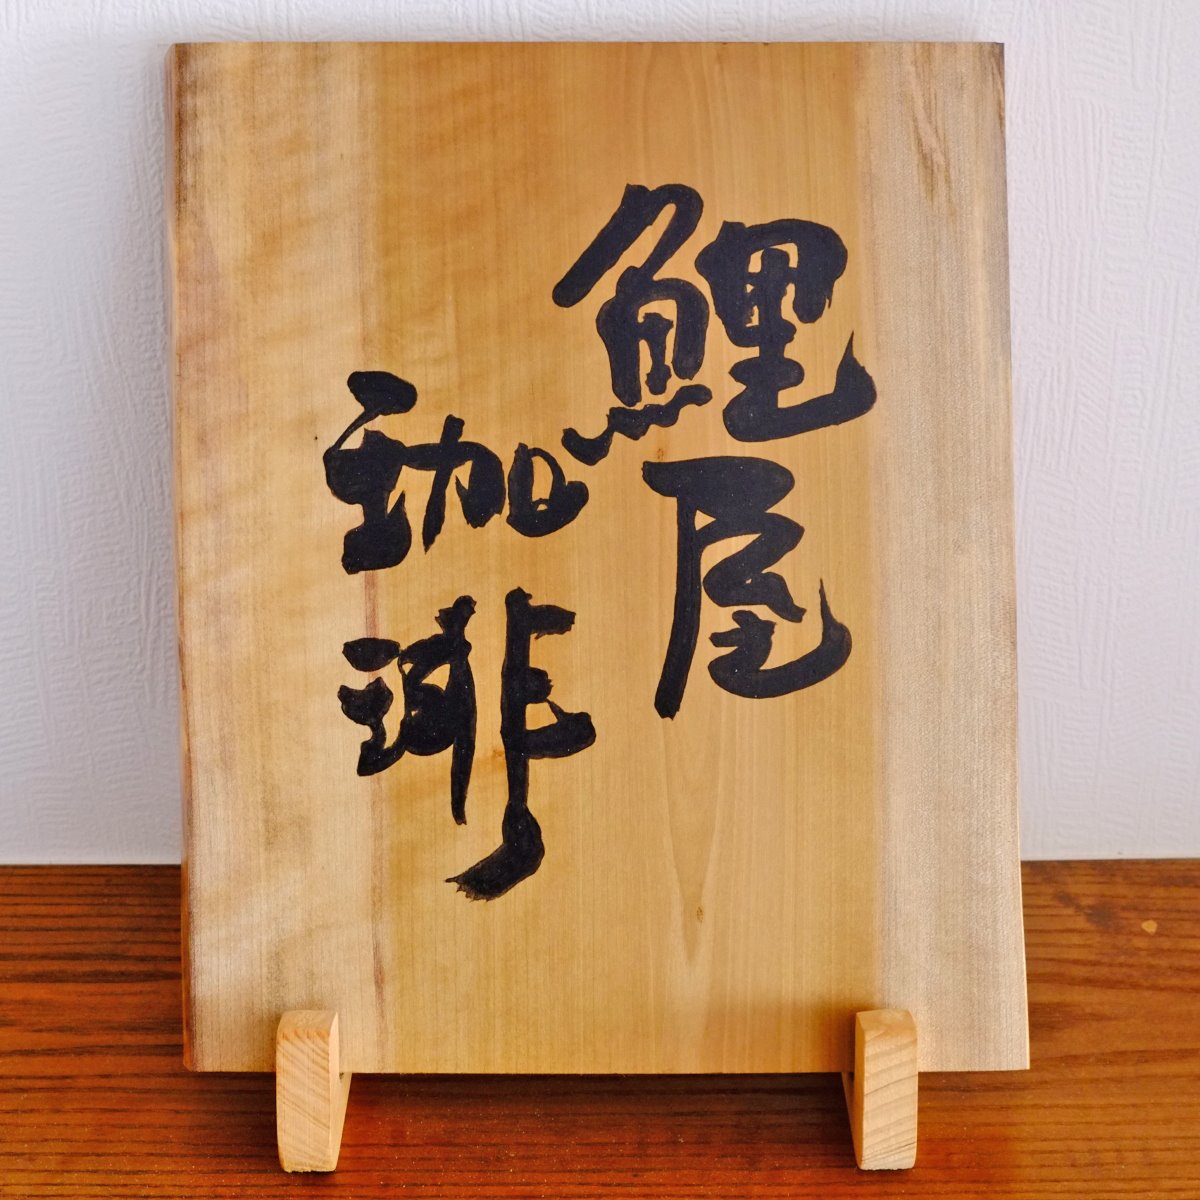 鯉屋
珈琲